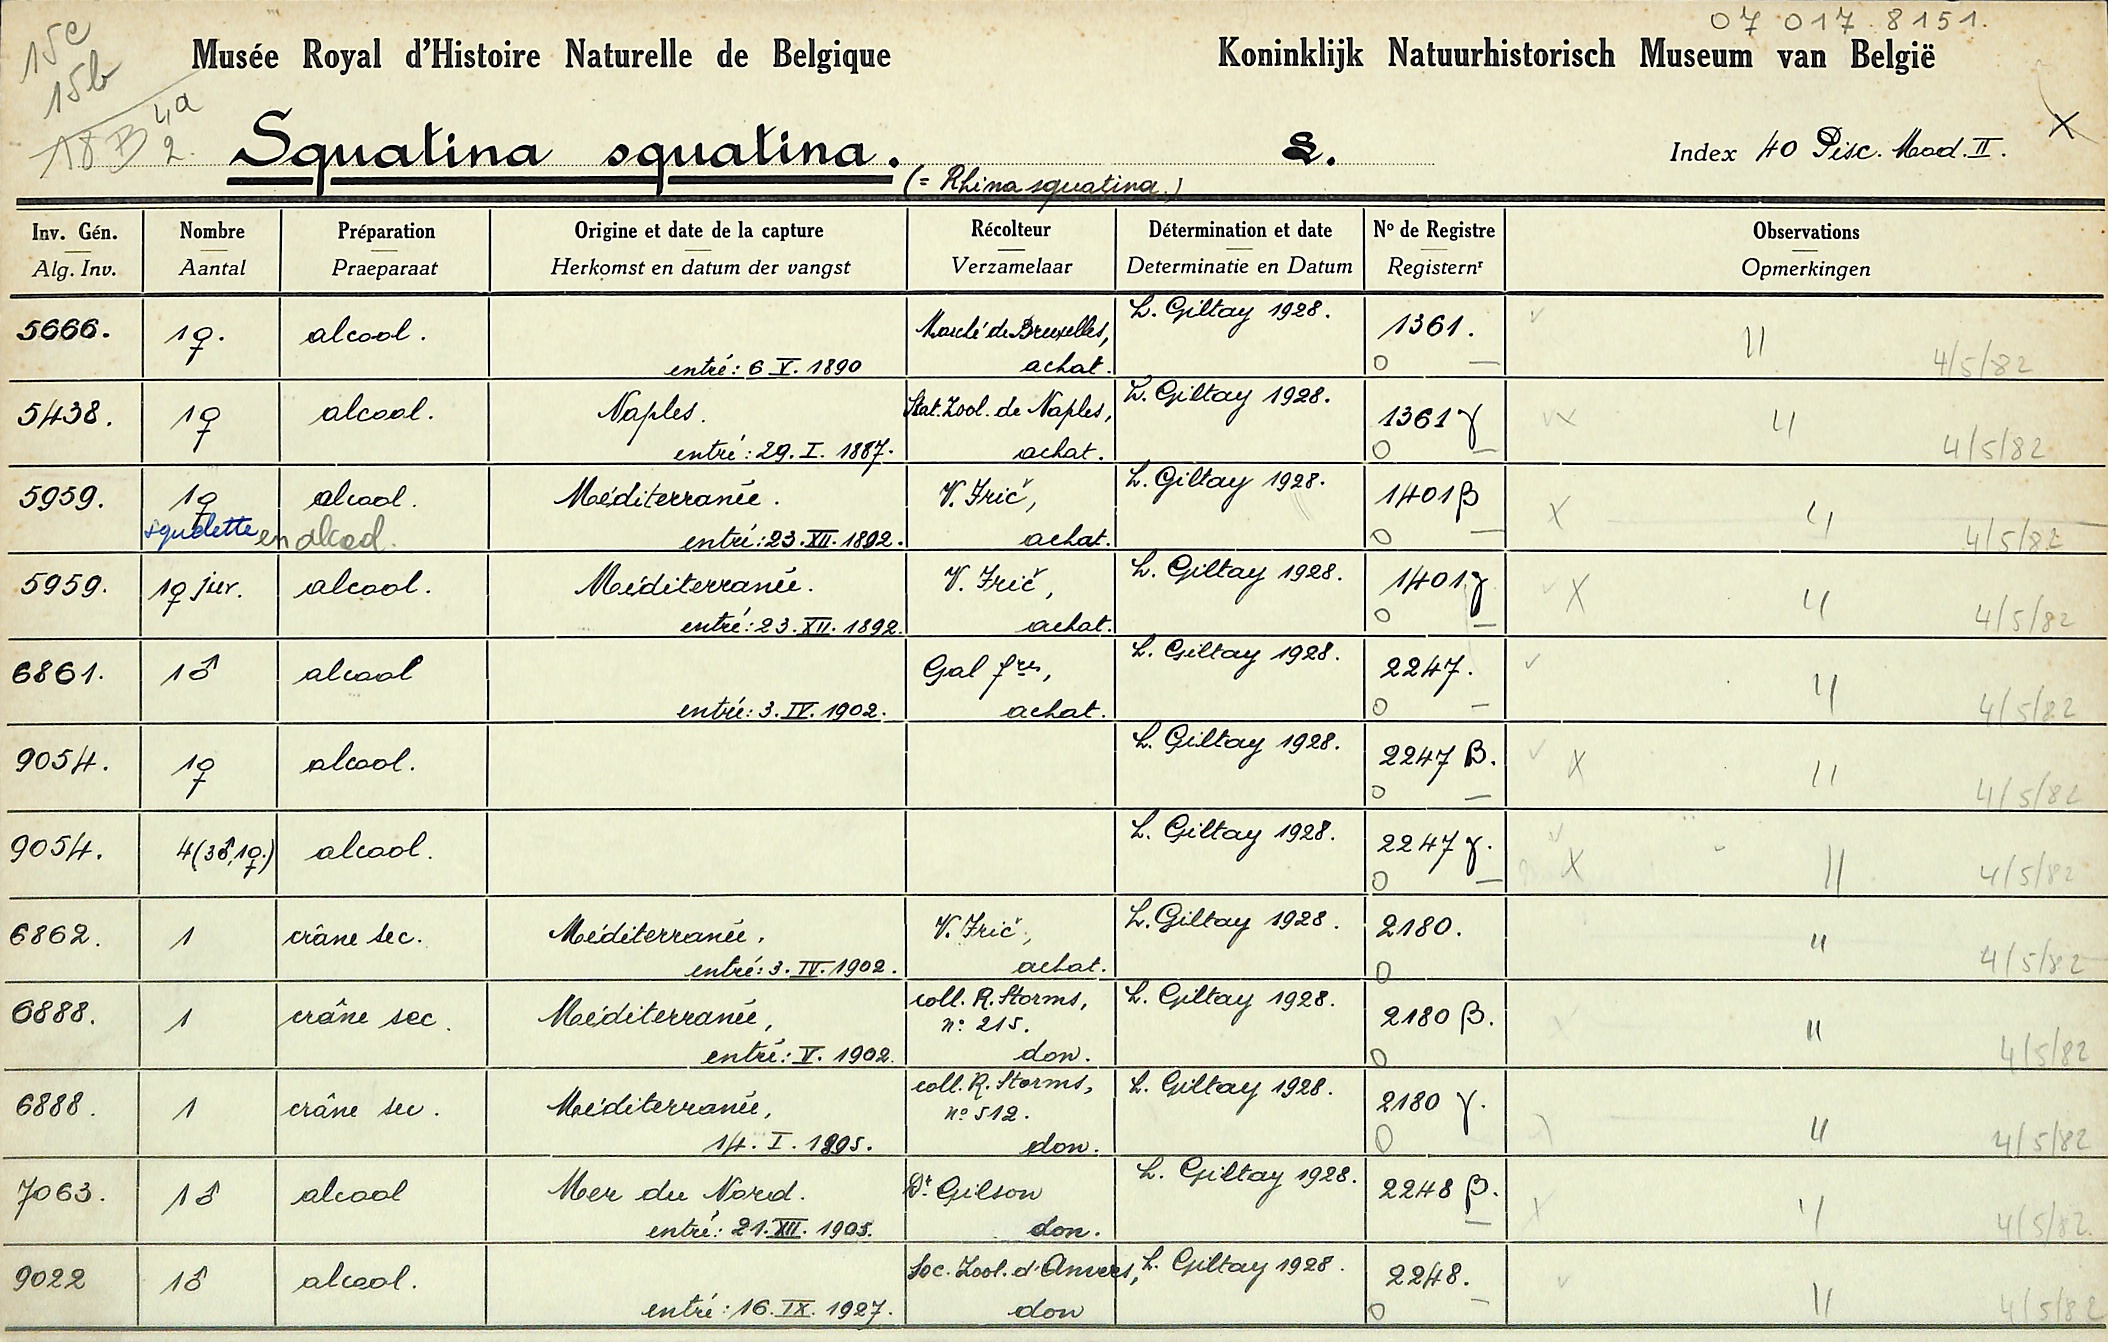 07 017 8151.
15c
15b
18 B 4a
2.
Musée Royal d'Histoire Naturelle de Belgique
Koninklijk Natuurhistorisch Museum van België
Squatina squatina.
(= Rhina squatina.)
Index 40 Pisc. Mod. II.
X
Inv. Gén. Nombre Préparation Origine et date de la capture Récolteur Détermination et date No de Registre Observations
Alg. Inv. Aantal Praeparaat Herkomst en datum der vangst Verzamelaar Determinatie en Datum Registernr Opmerkingen
5666. 1♀. alcool. Marché de Bruxelles, L. Giltay 1928. 1361. "
entré: 6 V. 1890 achat. 0 — 4/5/82
5438. 1♀ alcool. Naples. Stat. Zool. de Naples, L. Giltay 1928. 1361 γ "
entré: 29. I. 1887. achat. 0 — 4/5/82
5959. 1♀ alcool. Méditerranée. V. Frič, L. Giltay 1928. 1401 β X "
squelette en alcool. entré: 23. XII. 1892. achat. 0 — 4/5/82
5959. 1♀ juv. alcool. Méditerranée. V. Frič, L. Giltay 1928. 1401 γ X "
entré: 23. XII. 1892. achat. 0 — 4/5/82
6861. 1♂ alcool Gal fres, L. Giltay 1928. 2247. "
entré: 3. IV. 1902. achat. 0 — 4/5/82
9054. 1♀ alcool. L. Giltay 1928. 2247 β. X "
0 — 4/5/82
9054. 4 (3♂, 1♀.) alcool. L. Giltay 1928. 2247 γ. X "
0 — 4/5/82
6862. 1 crâne sec. Méditerranée, V. Frič, L. Giltay 1928. 2180. "
entré: 3. IV. 1902. achat. 0 4/5/82
6888. 1 crâne sec. Méditerranée, coll. R. Storms, L. Giltay 1928. 2180 β. "
no 215.
entré: V. 1902. don. 0 4/5/82
6888. 1 crâne sec. Méditerranée, coll. R. Storms, L. Giltay 1928. 2180 γ. "
no 512.
14. I. 1895. don. 0 4/5/82
7063. 1♂ alcool Mer du Nord. Dr Gilson L. Giltay 1928. 2248 β. X "
entré: 21. XII. 1905. don. — 4/5/82.
9022 1♂ alcool. Soc. Zool. d'Anvers, L. Giltay 1928. 2248. "
entré: 16. IX. 1927. don 0 — 4/5/82